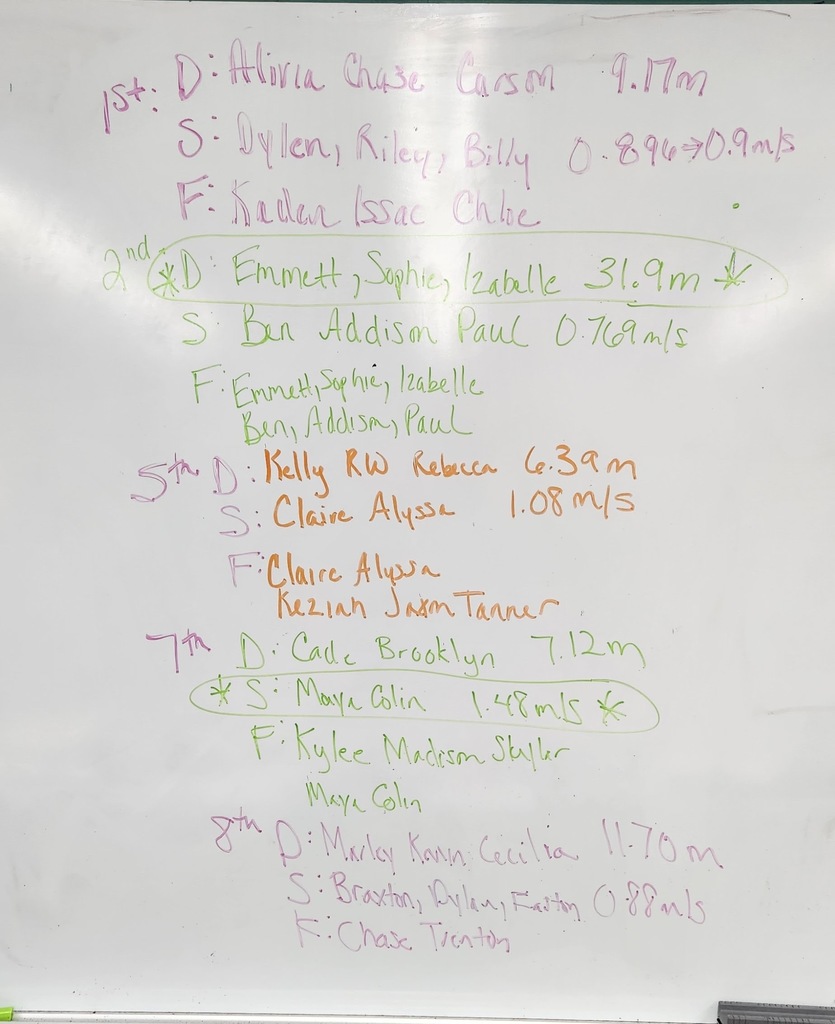 1st: D: Alivia Chase Carson 9.17m
S: Dylen, Riley, Billy 0.896→0.9m/s
F: Kaden Issac Chloe
2nd *D: Emmett, Sophie, Izabelle 31.9m *
S: Ben Addison Paul 0.769m/s
F: Emmett, Sophie, Izabelle
Ben, Addison, Paul
5th D: Kelly RW Rebecca 6.39m
S: Claire Alyssa 1.08m/s
F: Claire Alyssa
Keziah Jaxon Tanner
7th D: Cade Brooklyn 7.12m
* S: Maya Colin 1.48m/s *
F: Kylee Madison Skyler
Maya Colin
8th D: Marley Cecilia 11.70m
S: Braxton, Dylan, Easton 0.88m/s
F: Chase Trenton